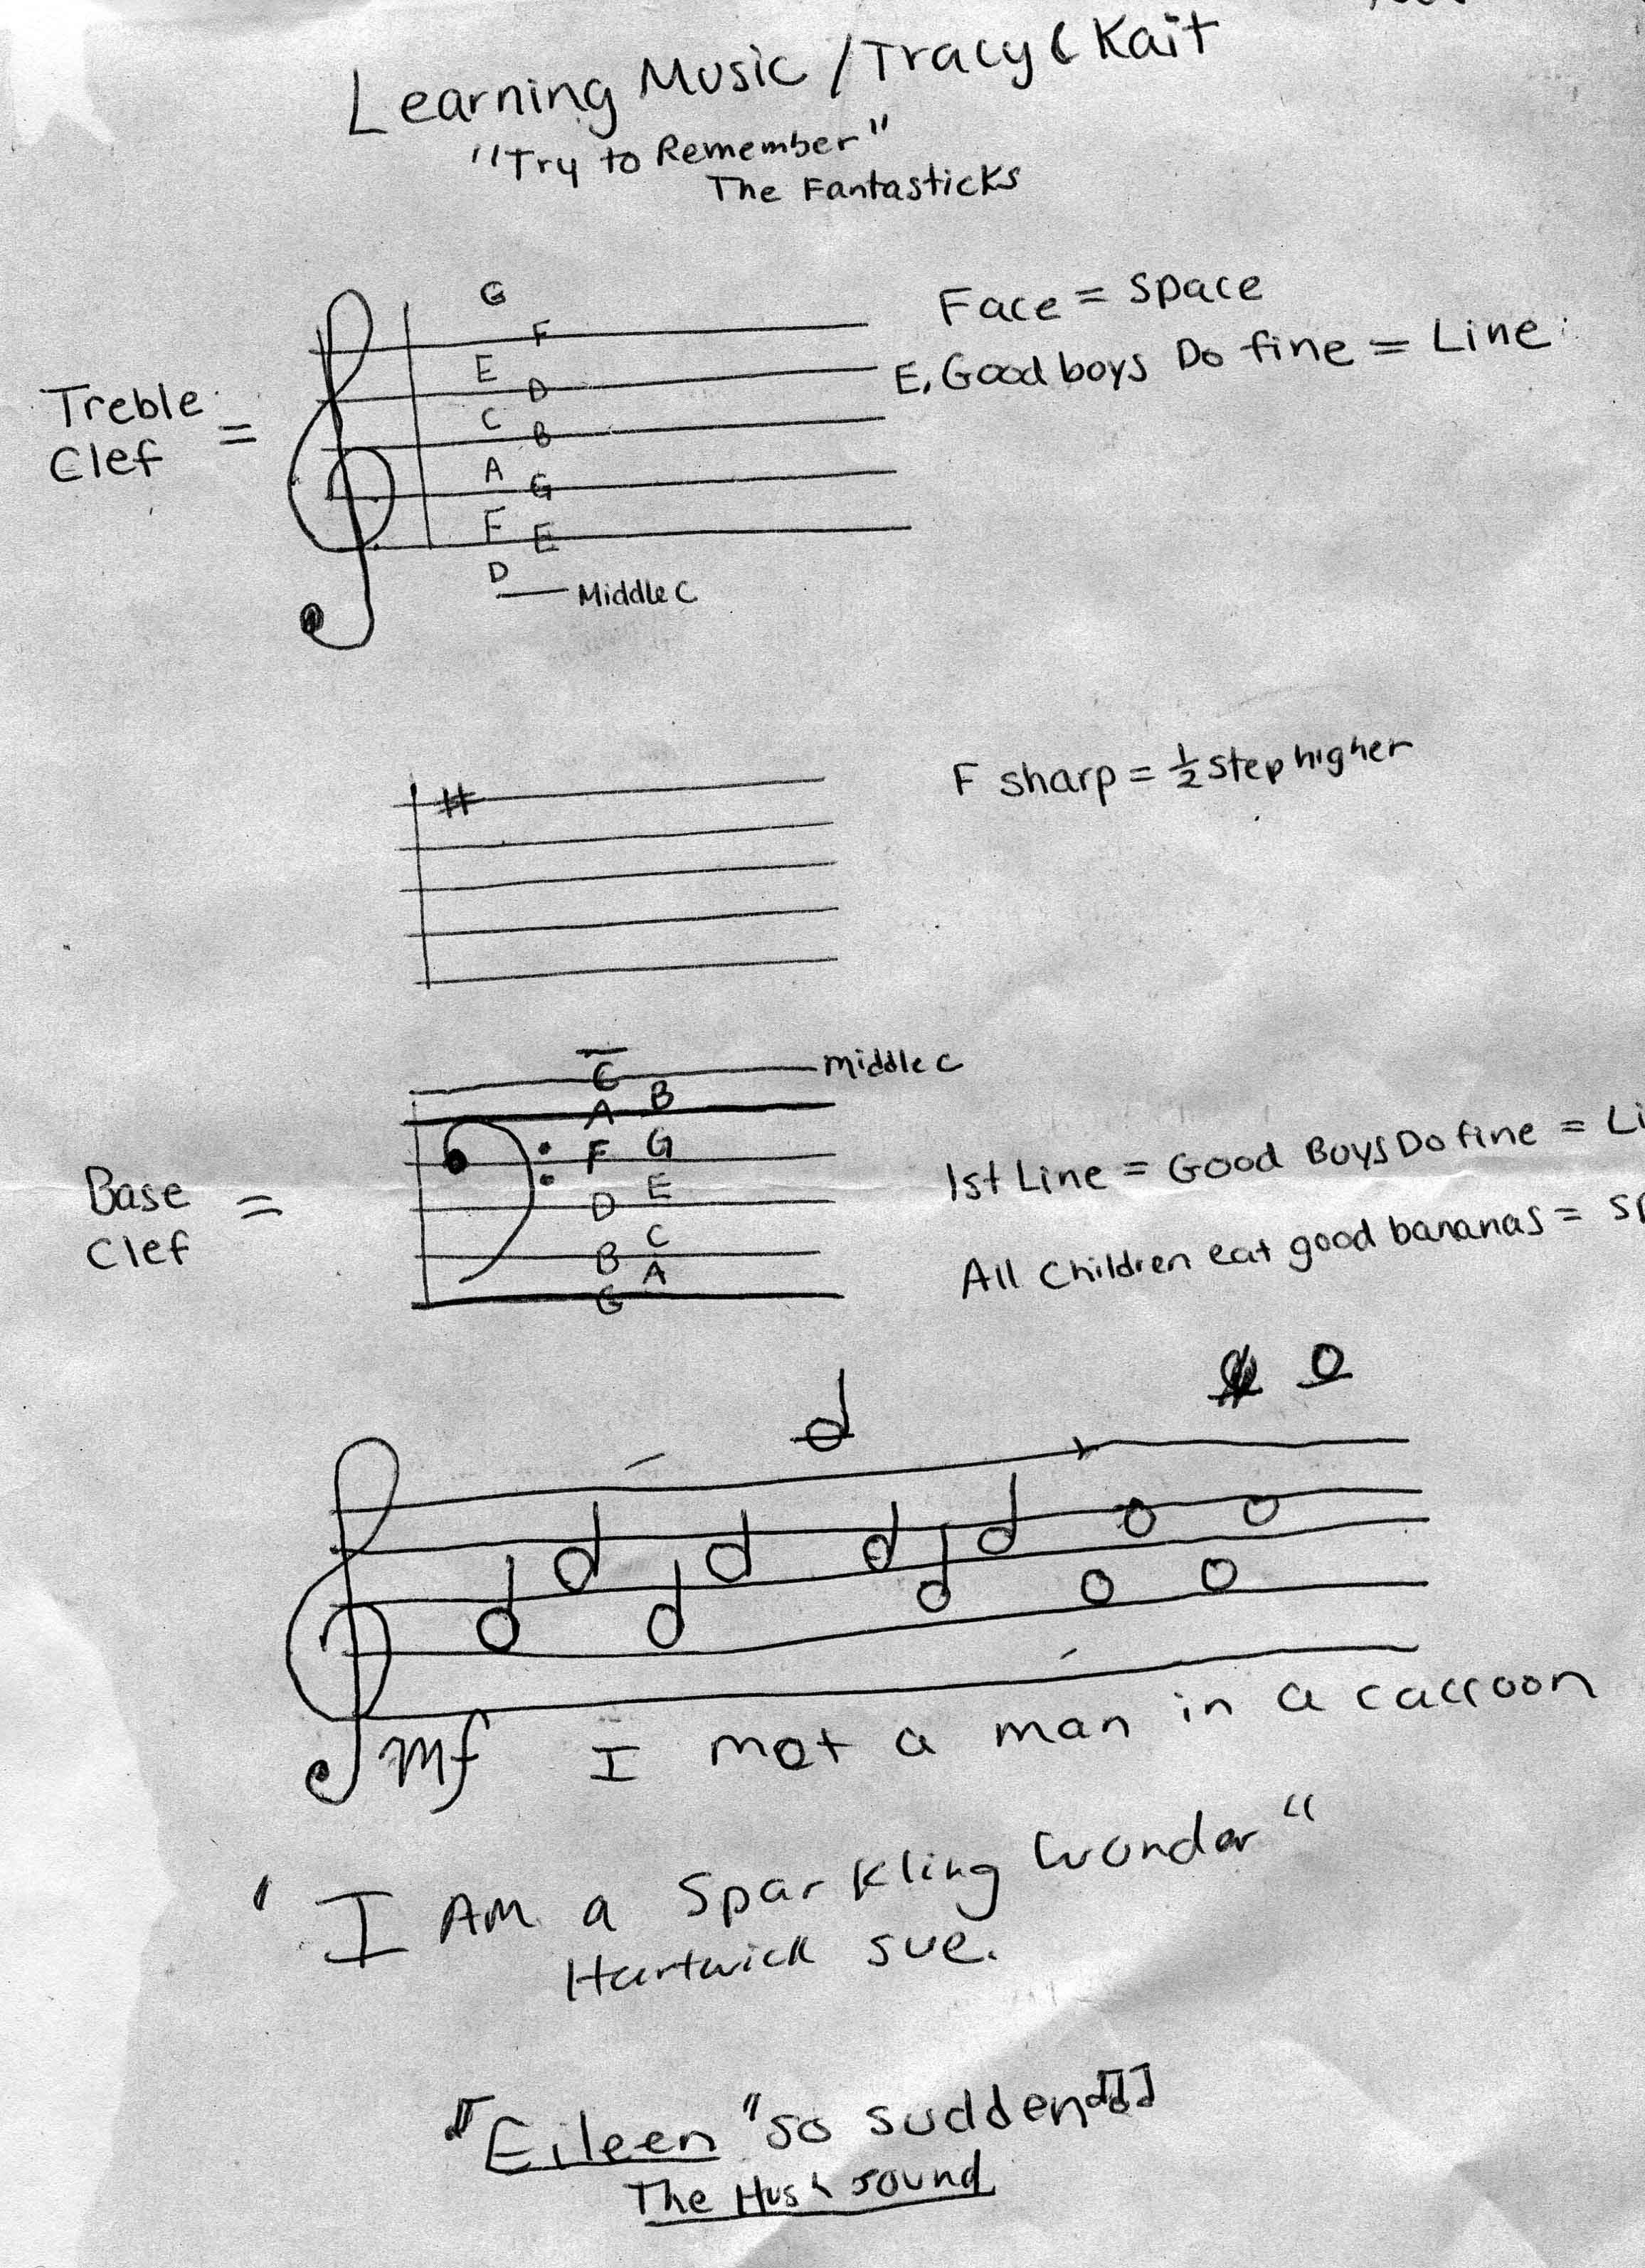 Learning Music / Tracy & Kait
"Try to Remember"
The Fantasticks
G
F
E
D
C
B
A
G
F
E
D
Middle C
Treble
Clef =
Face = Space
E, Good boys Do fine = Line
F sharp = ½ step higher
C
middle c
B
A
G
F
E
D
C
B
A
G
Base
Clef =
1st Line = Good Boys Do fine = Li
All children eat good bananas = sp
mf I met a man in a caccoon
"I AM a Sparkling Wonder"
Hartwick sue.
Eileen "so sudden
The Hush sound